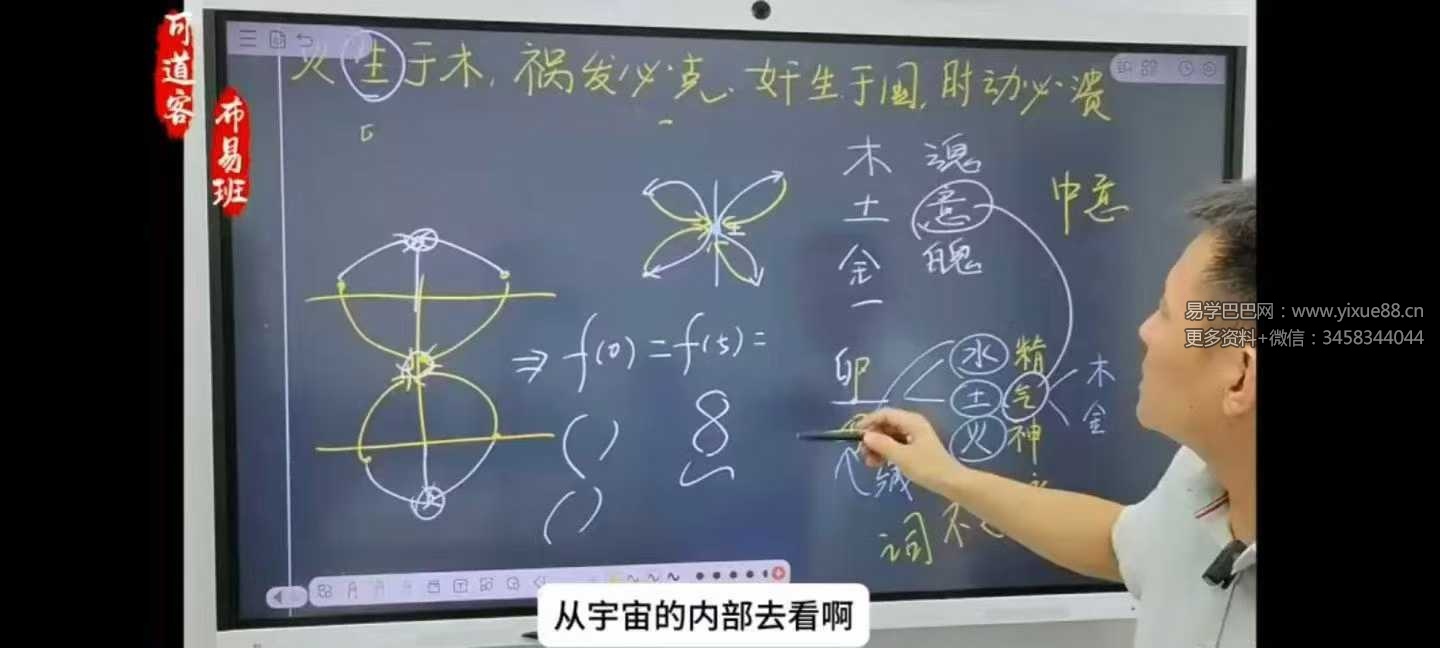 可道客
布易班
火生于木,祸发必克.奸生于国,时动必溃
木 魂
土 意
金 魄
中意
易学巴巴网:www.yixue88.cn
更多资料+微信:3458344044
⇒ f(0)=f(5)=
卵
水 精
土 气
火 神
木
金
8
缄
词不
从宇宙的内部去看啊